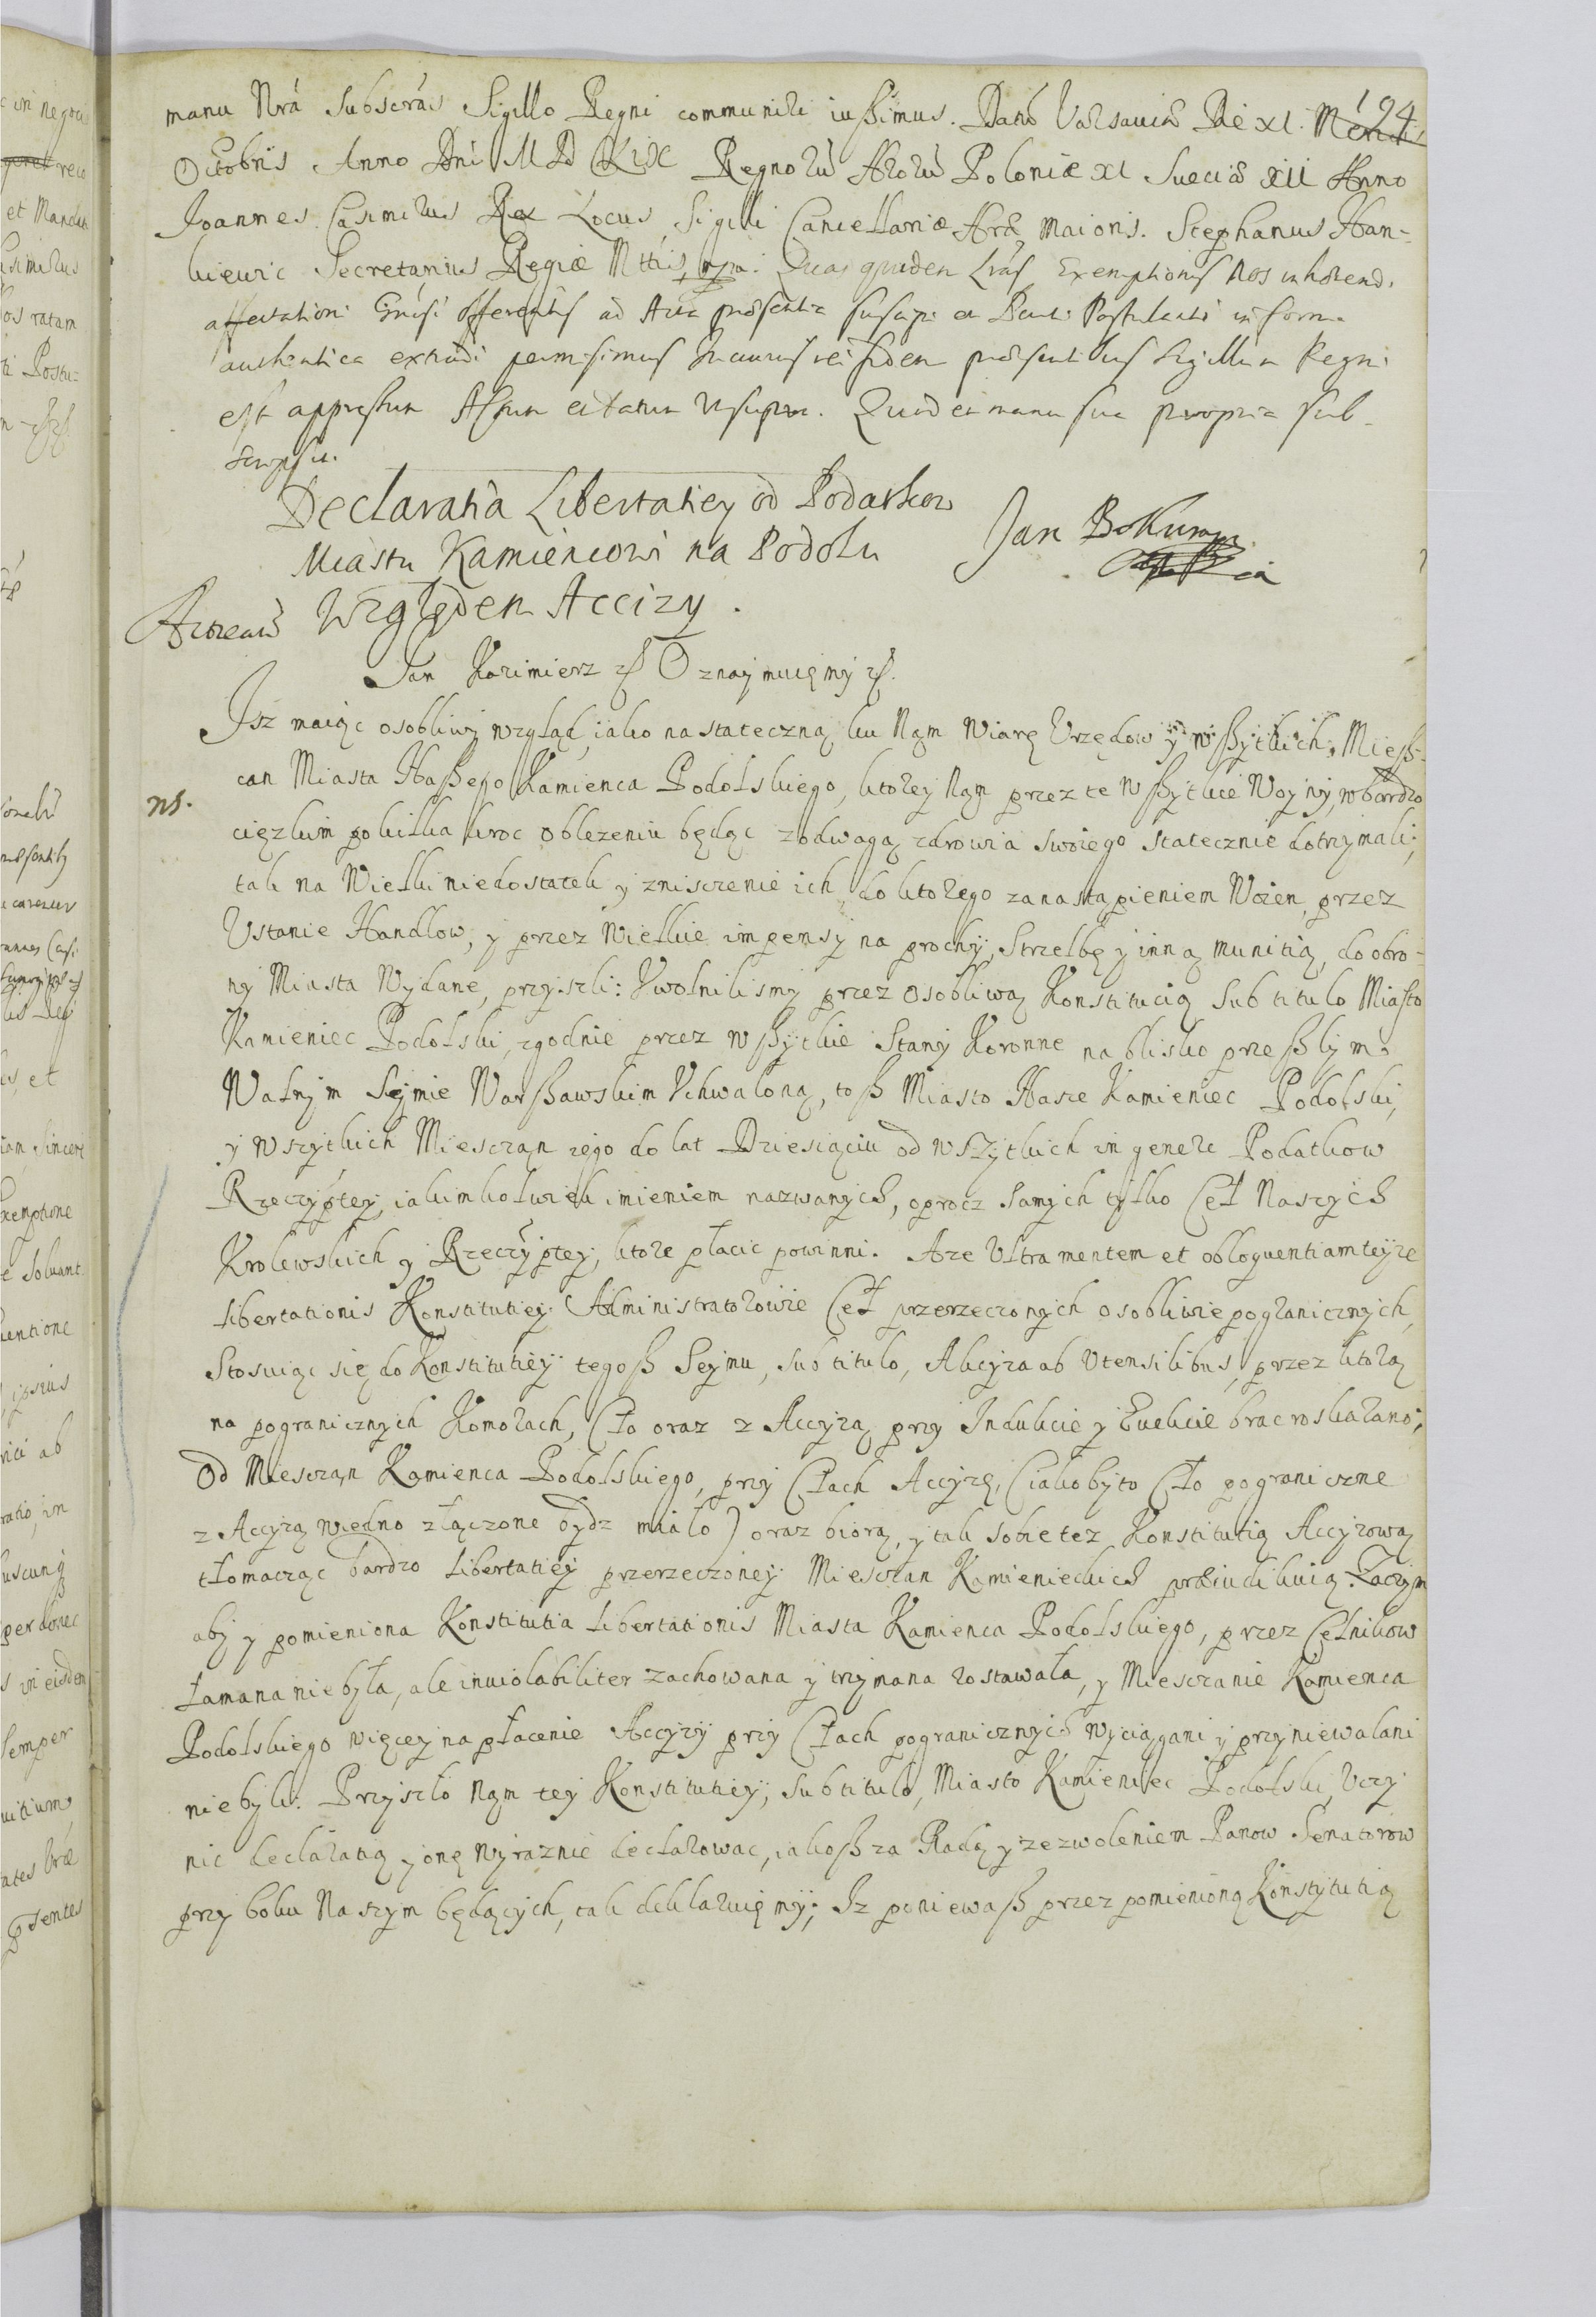 194
manu Nrá Subscráꝭ Sigillo Regni communiri iußimus. Datũ Varsaviæ Die XI. Mensis
Octobris Anno Dni MDCLIX Regnorũ Nrorũ Poloniæ XI Sueciæ XII Anno
Joannes Casimirus Rex Locus Sigilli Cancellariæ Nræ Maioris. Stephanus Han-
kiewic Secretarius Regiæ Mttis mpa. Quas quidem Lras Exemptionis Nos inhærend.
affectationi offerentis ad Acta præsentia suscipi et Parti Postulanti in forma
authentica extradi permisimus In cuius rei fidem præsentibus Sigillum Regni
est appressum Actum et datum ut supra. Quod et manu sua propria sub-
scripsit.
Declaratia Libertatiey od Podatkow
Miastu Kamieńcowi na Podolu
Względem Accizy.
Jan Bokum mpr.
Jan Kazimierz etc Oznaymuięmy etc.
Isz maiąc osobliwy wzgląd, iako na stateczną ku Nąm Wiarę Vrzędow y wßytkich Mieß-
can Miasta Naßego Kamienca Podolskiego, ktorey Nąm przez te wßytkie Woyny, w bardzo
ns.
cięzkim po kilka kroc oblezeniu będąc z odwagą zdrowia swoiego statecznie dotrzymali;
tak na Wielki niedostatek y zniszczenie ich, do ktorego za nastąpieniem Woien, przez
Vstanie Handlow, y przez Wielkie impensy na prochy, Strzelbę y inną munitią, do obro-
ny Miasta Wydane, przyszli: Vwolnilismy przez osobliwą Konstitucią sub titulo Miasto
Kamieniec Podolski, zgodnie przez wßytkie Stany Koronne na blisko przeßlym
Walnym Seymie Warßawskim Vchwaloną, toß Miasto Nasze Kamieniec Podolski,
y wszytkich Miesczan iego do lat Dziesiąciu od wszytkich in genere Podatkow
Rzeczyptey, iakimkolwiek imieniem nazwanych, oprocz samych tylko Ceł Naszych
Krolewskich y Rzeczyptey, ktore płacic powinni. Aze Vltra mentem et obloquentiam teyze
libertationis Konstitutiey Administratorowie Ceł przerzeczonych osobliwie pogranicznych,
Stosuiąc się do Konstitutiey tegoß Seymu, sub titulo, Akcyza ab Vtensilibus, przez ktorą
na pogranicznych Komorach, Cło oraz z Accyzą przy Indukcie y Evekcie brac roskazano;
Od Miesczan Kamienca Podolskiego, przy Cłach Accyzę, (iakoby to Cło pograniczne
z Accyzą wiedno złączone bydz miało) oraz biorą, y tak sobie tez Konstitutią Accyzową
tłomacząc bardzo libertatiey przerzeczoney Miesczan Kamienieckich præiudikuią. Zaczym
aby y pomieniona Konstitutia libertationis Miasta Kamienca Podolskiego, przez Celnikow
łamana niebyła, ale inviolabiliter zachowana y trzymana zostawała, y Miesczanie Kamienca
Podolskiego więcey na płacenie Accyzy przy Cłach pogranicznych wyciągani y przyniewalani
niebyli. Przyszło Nąm tey Konstitutiey, sub titulo, Miasto Kamieniec Podolski, Vczy
nic declaratią y onę wyraznie declarowac, iakoß za Radą y zezwoleniem Panow Senatorow
przy boku Naszym będących, tak deklaruięmy; Iz poniewaß przez pomienioną Konstytutią